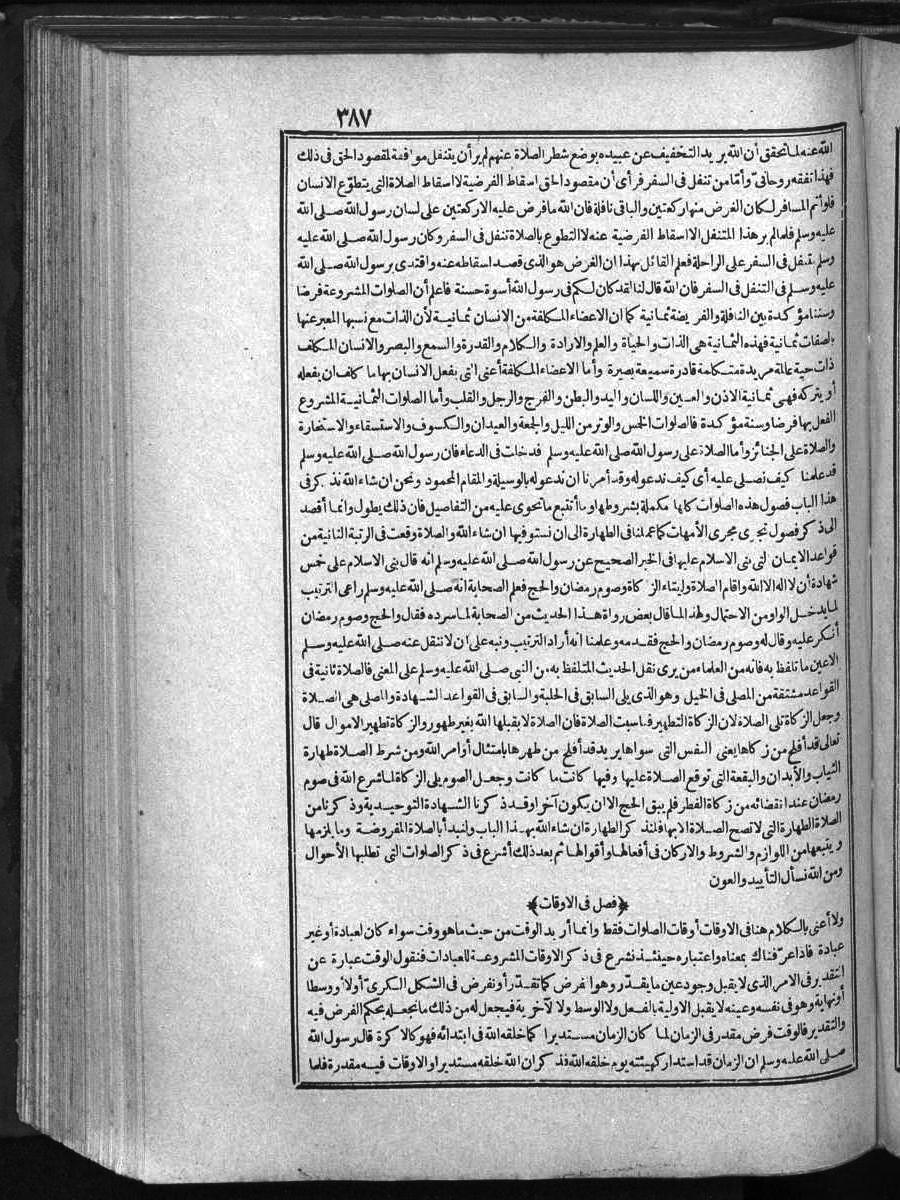 ٣٨٧
الله عنه لما تحقق أن الله يريد التخفيف عن عبيده بوضع شطر الصلاة عنهم لم ير أن يتنفل موافقة لمقصود الحق في ذلك
فهذا تفقه روحانى وأمّا من تنفل فى السفر فرأى أن مقصود الحق اسقاط الفرضية لا اسقاط الصلاة التى يتطوّع الانسان
فلو أتم المسافر لكان الفرض منها ركعتين والباقى نافلة فان الله ما فرض عليه الا ركعتين على لسان رسول الله صلى الله
عليه وسلم فلما لم ير هذا المتنفل الا اسقاط الفرضية عنه لا التطوع بالصلاة تنفل فى السفر وكان رسول الله صلى الله عليه
وسلم يتنفل فى السفر على الراحلة فعلم القائل بهذا ان الفرض هو الذى قصد اسقاطه عنه واقتدى برسول الله صلى الله
عليه وسلم فى التنفل فى السفر فان الله قال لنا لقد كان لكم فى رسول الله أسوة حسنة فاعلم أن الصلوات المشروعة فرضا
وسننا مؤكدة بين النافلة والفريضة ثمانية كما ان الاعضاء المكلفة من الانسان ثمانية لأن الذات مع نسبها المعبر عنها
بالصفات ثمانية فهذه الثمانية هى الذات والحياة والعلم والارادة والكلام والقدرة والسمع والبصر والانسان المكلف
ذات حية عالمة مريدة متكلمة قادرة سميعة بصيرة وأما الاعضاء المكلفة أعنى التى يفعل الانسان بها ما كلف ان يفعله
أو يتركه فهى ثمانية الاذن والعين واللسان واليد والبطن والفرج والرجل والقلب وأما الصلوات الثمانية المشروع
الفعل بها فرضا وسنة مؤكدة فالصلوات الخمس والوتر من الليل والجمعة والعيدان والكسوف والاستسقاء والاستخارة
والصلاة على الجنائز وأما الصلاة على رسول الله صلى الله عليه وسلم فدخلت فى الدعاء فان رسول الله صلى الله عليه وسلم
قد علمنا كيف نصلى عليه أى كيف ندعو له وقد أمرنا ان ندعو له بالوسيلة والمقام المحمود ونحن ان شاء الله نذكر فى
هذا الباب فصول هذه الصلوات كلها مكملة بشروطها وما أتتبع ما تحوى عليه من التفاصيل فان ذلك يطول وانما أقصد
الى ذكر فصول تجرى مجرى الأمهات كما عملنا فى الطهارة الى ان نستوفيها ان شاء الله والصلاة وقعت فى الرتبة الثانية من
قواعد الايمان التى بنى الاسلام عليها فى الخبر الصحيح عن رسول الله صلى الله عليه وسلم انه قال بنى الاسلام على خمس
شهادة أن لا اله الا الله واقام الصلاة وايتاء الزكاة وصوم رمضان والحج فعلم الصحابة انه صلى الله عليه وسلم راعى الترتيب
لما يدخل الواو من الاحتمال ولهذا لما قال بعض رواة هذا الحديث من الصحابة لما سرده فقال والحج وصوم رمضان
أنكر عليه وقال له وصوم رمضان والحج فقدمه وعلمنا انه أراد الترتيب ونبه على ان لا ننقل عنه صلى الله عليه وسلم
الا عين ما تلفظ به فانه من العلماء من يرى نقل الحديث المتلفظ به من النبى صلى الله عليه وسلم على المعنى فالصلاة ثانية فى
القواعد مشتقة من المصلى فى الخيل وهو الذى يلى السابق فى الحلبة والسابق فى القواعد الشهادة والمصلى هى الصلاة
وجعل الزكاة تلى الصلاة لان الزكاة التطهير فناسبت الصلاة فان الصلاة لا يقبلها الله بغير طهور والزكاة تطهير الاموال قال
تعالى قد أفلح من زكاها يعنى النفس التى سواها يريد قد أفلح من طهرها بامتثال أوامر الله ومن شرط الصلاة طهارة
الثياب والأبدان والبقعة التى توقع الصلاة عليها وفيها كانت ما كانت وجعل الصوم يلى الزكاة لما شرع الله فى صوم
رمضان عند انقضائه من زكاة الفطر فلم يبق الحج الا ان يكون آخرا وقد ذكرنا الشهادة التوحيدية وذكرنا من
الصلاة الطهارة التى لا تصح الصلاة الا بها فلنذكر الطهارة ان شاء الله بهذا الباب ولنبدأ بالصلاة المفروضة وما يلزمها
ويتبعها من اللوازم والشروط والاركان فى أفعالها وأقوالها ثم بعد ذلك أشرع فى ذكر الصلوات التى تطلبها الأحوال
ومن الله نسأل التأييد والعون
﴿فصل فى الاوقات﴾
ولا أعنى بالكلام هنا فى الاوقات أوقات الصلوات فقط وانما أريد الوقت من حيث ما هو وقت سواء كان لعبادة أو غير
عبادة فاذا عرّفناك بمعناه واعتباره حينئذ نشرع فى ذكر الاوقات المشروعة للعبادات فنقول الوقت عبارة عن
التقدير فى الامر الذى لا يقبل وجود عين ما يقدّر وهو الفرض كما تقدّر أو نفرض فى الشكل الكرىّ أولا أو وسطا
أو نهاية وهو فى نفسه وعينه لا يقبل الاولية بالفعل ولا الوسط ولا الآخرية فيجعل له من ذلك ما نجعله بحكم الفرض فيه
والتقدير فالوقت فرض مقدر فى الزمان لما كان الزمان مستديرا كما خلقه الله فى ابتدائه فهو كالاكرة قال رسول الله
صلى الله عليه وسلم ان الزمان قد استدار كهيئته يوم خلقه الله فذكر ان الله خلقه مستديرا والاوقات فيه مقدرة فلما